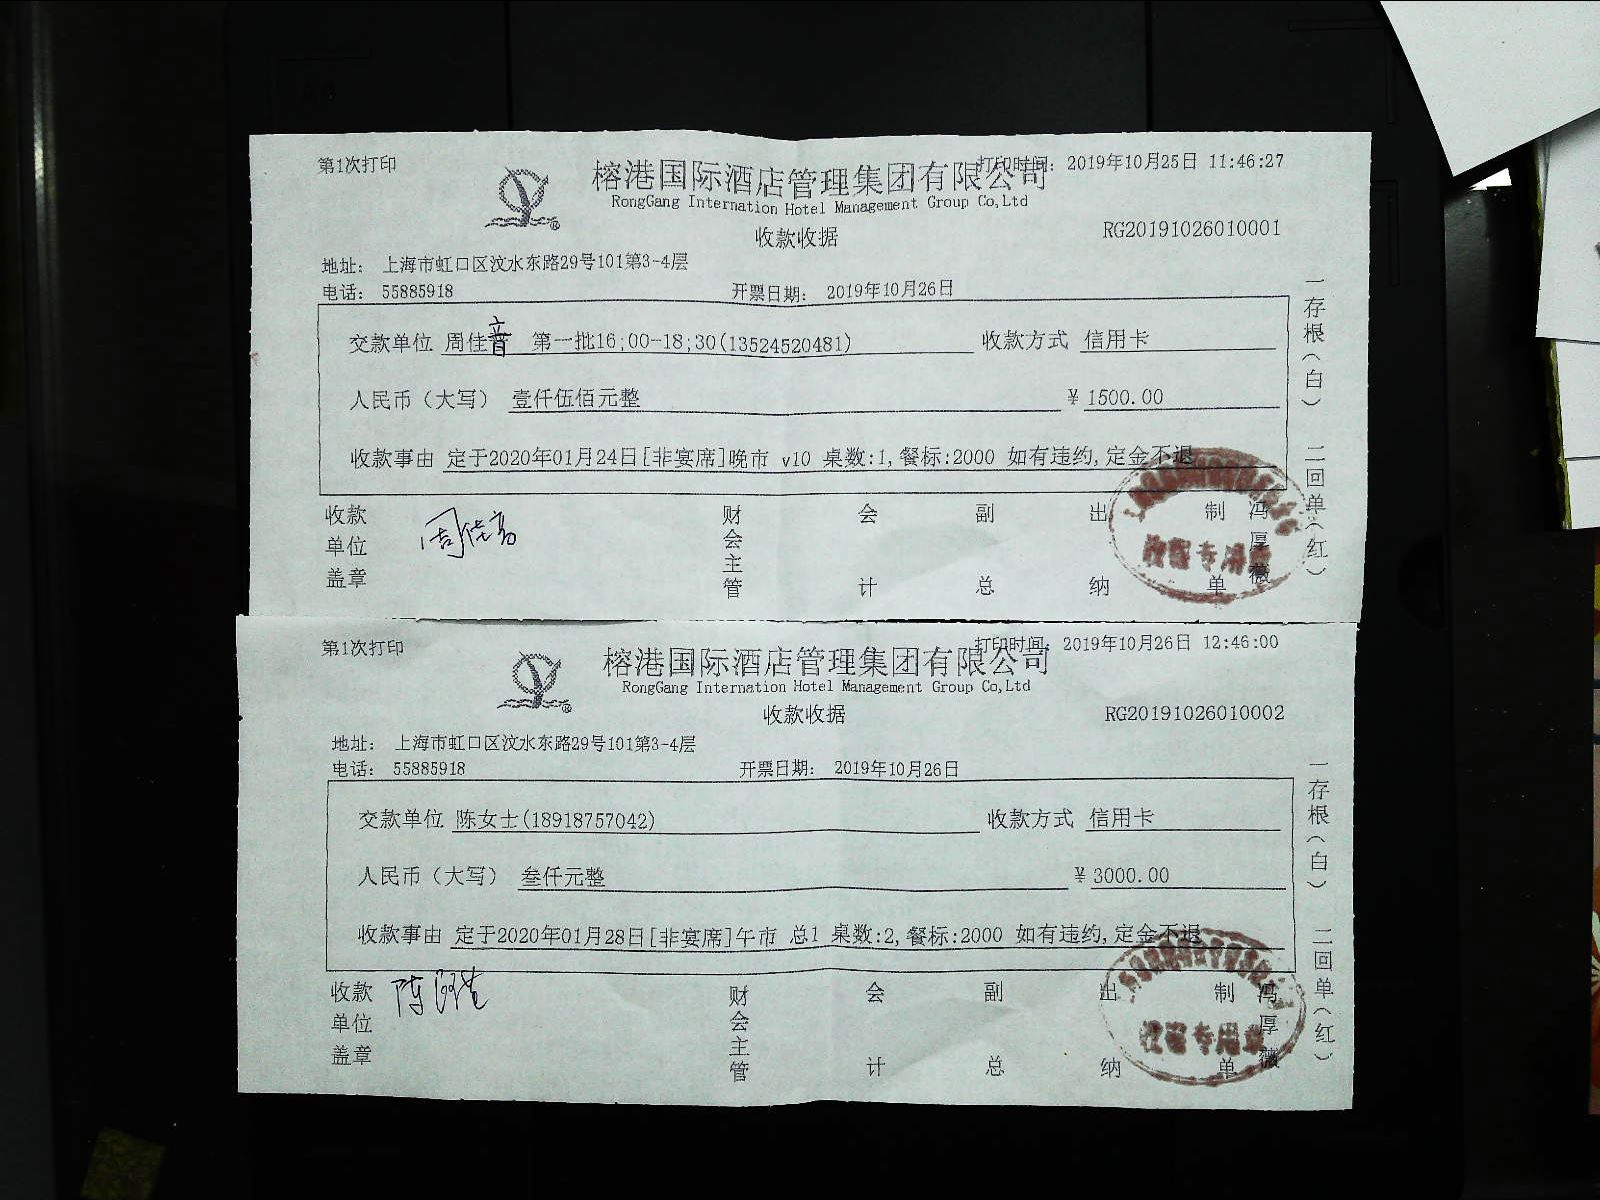 第1次打印
打印时间：2019年10月25日 11:46:27
榕港国际酒店管理集团有限公司
RongGang Internation Hotel Management Group Co,Ltd
收款收据
RG20191026010001
地址： 上海市虹口区汶水东路29号101第3-4层
电话： 55885918 开票日期： 2019年10月26日
交款单位 周佳音 第一批16;00-18;30(13524520481) 收款方式 信用卡
人民币（大写） 壹仟伍佰元整 ￥1500.00
收款事由 定于2020年01月24日[非宴席]晚市 v10 桌数:1,餐标:2000 如有违约,定金不退
收款单位盖章 周佳音 财会主管 会计 副总 出纳 制单 冯厚薇
收银专用章
一存根（白） 二回单（红）
第1次打印
打印时间：2019年10月26日 12:46:00
榕港国际酒店管理集团有限公司
RongGang Internation Hotel Management Group Co,Ltd
收款收据
RG20191026010002
地址： 上海市虹口区汶水东路29号101第3-4层
电话： 55885918 开票日期： 2019年10月26日
交款单位 陈女士(18918757042) 收款方式 信用卡
人民币（大写） 叁仟元整 ￥3000.00
收款事由 定于2020年01月28日[非宴席]午市 总1 桌数:2,餐标:2000 如有违约,定金不退
收款单位盖章 陈 财会主管 会计 副总 出纳 制单 冯厚薇
收银专用章
一存根（白） 二回单（红）